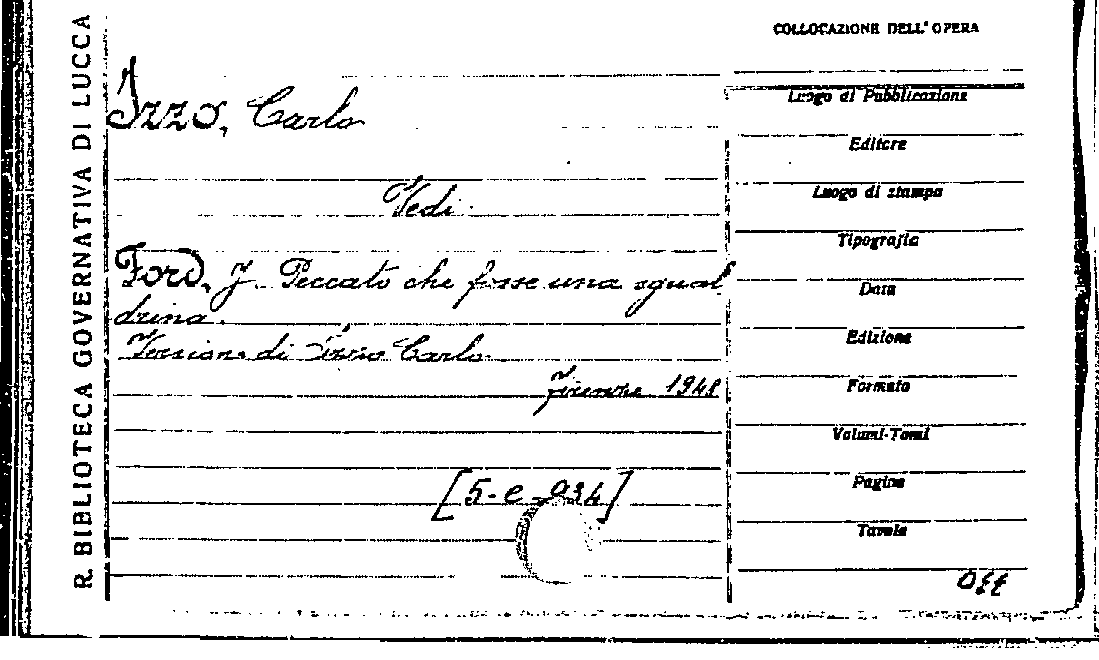 R. BIBLIOTECA GOVERNATIVA DI LUCCA
Izzo, Carlo
Vedi
Ford, J. Peccato che fosse una sgual
drina.
Versione di Izzo Carlo
Firenze 1948
[5-e-934]
COLLOCAZIONE DELL'OPERA
Luogo di Pubblicazione
Editore
Luogo di stampa
Tipografia
Data
Edizione
Formato
Volumi-Tomi
Pagine
Tavole